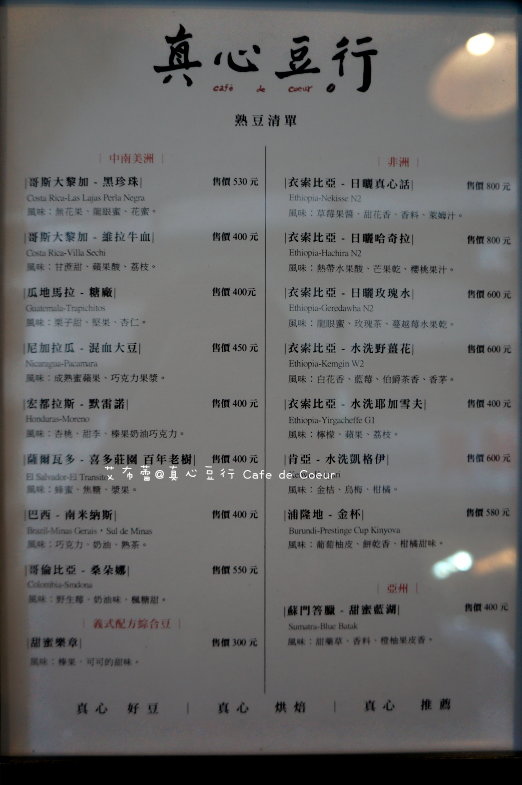 真心豆行
café de coeur
熟豆清單
| 中南美洲 |
|哥斯大黎加 - 黑珍珠| 售價 530 元
Costa Rica-Las Lajas Perla Negra
風味：無花果、龍眼蜜、花蜜。
|哥斯大黎加 - 維拉牛血| 售價 400 元
Costa Rica-Villa Sechi
風味：甘蔗甜、蘋果酸、荔枝。
|瓜地馬拉 - 糖廠| 售價 400元
Guatemala-Trapichitos
風味：栗子甜、堅果、杏仁。
|尼加拉瓜 - 混血大豆| 售價 450 元
Nicaragua-Pacamara
風味：成熟蜜蘋果、巧克力果漿。
|宏都拉斯 - 默雷諾| 售價 400 元
Honduras-Moreno
風味：杏桃、甜李、榛果奶油巧克力。
|薩爾瓦多 - 喜多莊園 百年老樹| 售價 400 元
El Salvador-El Transito
風味：蜂蜜、焦糖、漿果。
|巴西 - 南米納斯| 售價 400 元
Brazil-Minas Gerais，Sul de Minas
風味：巧克力、奶油、熟茶。
|哥倫比亞 - 桑朵娜| 售價 550 元
Colombia-Sandona
風味：野生莓、奶油味、楓糖甜。
| 義式配方綜合豆 |
|甜蜜樂章| 售價 300 元
風味：榛果、可可的甜味。
| 非洲 |
|衣索比亞 - 日曬真心話| 售價 800 元
Ethiopia-Nekisse N2
風味：草莓果醬、甜花香、香料、萊姆汁。
|衣索比亞 - 日曬哈奇拉| 售價 800 元
Ethiopia-Hachira N2
風味：熱帶水果酸、芒果乾、櫻桃果汁。
|衣索比亞 - 日曬玫瑰水| 售價 600 元
Ethiopia-Geredawha N2
風味：龍眼蜜、玫瑰茶、蔓越莓水果乾。
|衣索比亞 - 水洗野薑花| 售價 600 元
Ethiopia-Kemgin W2
風味：白花香、藍莓、伯爵茶香、香茅。
|衣索比亞 - 水洗耶加雪夫| 售價 400 元
Ethiopia-Yirgacheffe G1
風味：檸檬、蘋果、荔枝。
|肯亞 - 水洗凱格伊| 售價 600 元
風味：金桔、烏梅、柑橘。
|浦隆地 - 金杯| 售價 580 元
Burundi-Prestinge Cup Kinyova
風味：葡萄柚皮、餅乾香、柑橘甜味。
| 亞州 |
|蘇門答臘 - 甜蜜藍湖| 售價 400 元
Sumatra-Blue Batak
風味：甜藥草、香料、橙柚果皮香。
真心 好豆 | 真心 烘焙 | 真心 推薦
艾布蕾@真心豆行 Cafe de Coeur